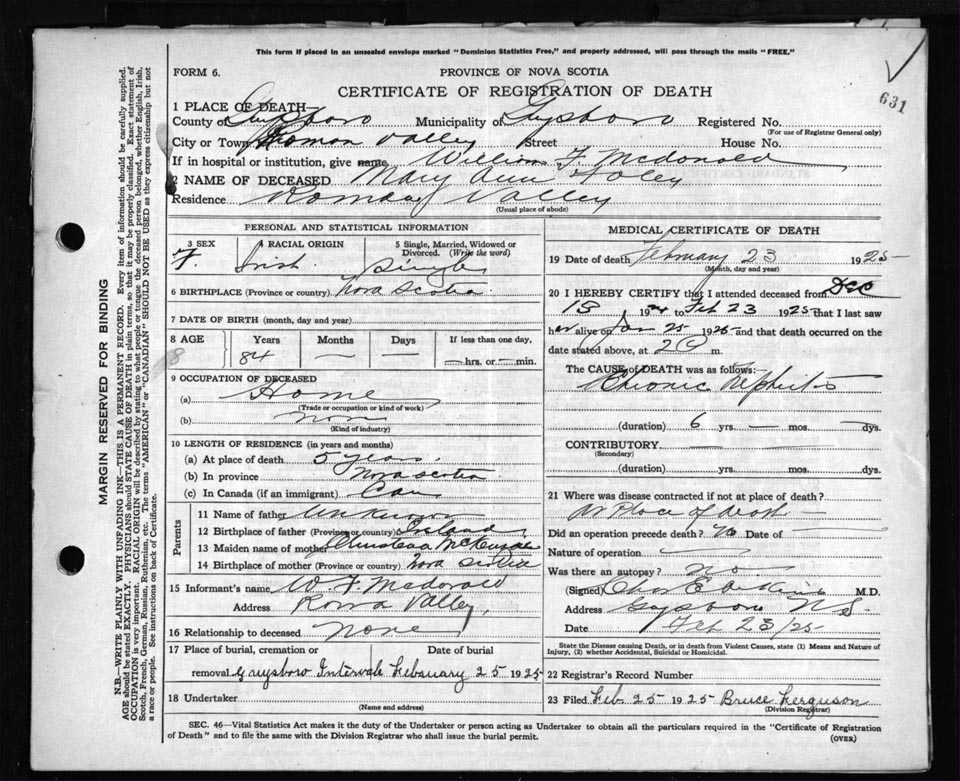 This form if placed in an unsealed envelope marked "Dominion Statistics Free," and properly addressed, will pass through the mails "FREE."
631
FORM 6.
PROVINCE OF NOVA SCOTIA
CERTIFICATE OF REGISTRATION OF DEATH
1 PLACE OF DEATH—
County of Guysboro Municipality of Guysboro Registered No.
(For use of Registrar General only)
City or Town Roman Valley Street House No.
If in hospital or institution, give name, William F McDonald
2 NAME OF DECEASED Mary Ann Foley
Residence Roman Valley
(Usual place of abode)
PERSONAL AND STATISTICAL INFORMATION
3 SEX 4 RACIAL ORIGIN 5 Single, Married, Widowed or Divorced. (Write the word)
F. Irish. Single
6 BIRTHPLACE (Province or country) Nova Scotia
7 DATE OF BIRTH (month, day and year)
8 AGE Years Months Days If less than one day,
8 84 — — — hrs. or — min.
9 OCCUPATION OF DECEASED
(a) Home
(Trade or occupation or kind of work)
(b) non
(Kind of industry)
10 LENGTH OF RESIDENCE (in years and months)
(a) At place of death 5 years.
(b) In province Nova Scotia
(c) In Canada (if an immigrant) Can
Parents
11 Name of father Unknown
12 Birthplace of father (Province or country) Ireland
13 Maiden name of mother
14 Birthplace of mother (Province or country) Nova Scotia
15 Informant's name W F McDonald
Address Roma Valley,
16 Relationship to deceased none
17 Place of burial, cremation or removal Date of burial
Guysboro Intervale Febuuary 25 1925
18 Undertaker
(Name and address)
MEDICAL CERTIFICATE OF DEATH
19 Date of death February 23 1925
(Month, day and year)
20 I HEREBY CERTIFY that I attended deceased from Dec
13 1924 to Feb 23 1925 that I last saw
her alive on Jan 25 1925 and that death occurred on
date stated above, at 2 m.
The CAUSE of DEATH was as follows:
Chronic Nephritis
(duration) 6 yrs. — mos. — dys.
CONTRIBUTORY
(Secondary)
(duration) yrs. mos. dys.
21 Where was disease contracted if not at place of death?
At Place of Death —
Did an operation precede death? No Date of —
Nature of operation
Was there an autopsy? No
(Signed) Chas E M.D.
Address Guysboro N.S.
Date Feb 23/25
State the Disease causing Death, or in death from Violent Causes, state (1) Means and Nature of Injury, (2) whether Accidental, Suicidal or Homicidal.
22 Registrar's Record Number
23 Filed Feb 25 1925 Bruce Ferguson
(Division Registrar)
SEC. 46—Vital Statistics Act makes it the duty of the Undertaker or person acting as Undertaker to obtain all the particulars required in the "Certificate of Registration
of Death" and to file the same with the Division Registrar who shall issue the burial permit.
(OVER)
MARGIN RESERVED FOR BINDING
N.B.—WRITE PLAINLY WITH UNFADING INK—THIS IS A PERMANENT RECORD. Every item of information should be carefully supplied.
AGE should be stated EXACTLY. PHYSICIANS should STATE CAUSE OF DEATH in plain terms, so that it may be properly classified. Exact statement of
OCCUPATION is very important. RACIAL ORIGIN will be described by stating to what people or tongue the deceased person belonged, whether English, Irish,
Scotch, French, German, Russian, Ruthenian, etc. The terms "AMERICAN" or "CANADIAN" SHOULD NOT BE USED as they express citizenship but not
a race or people. See instructions on back of Certificate.